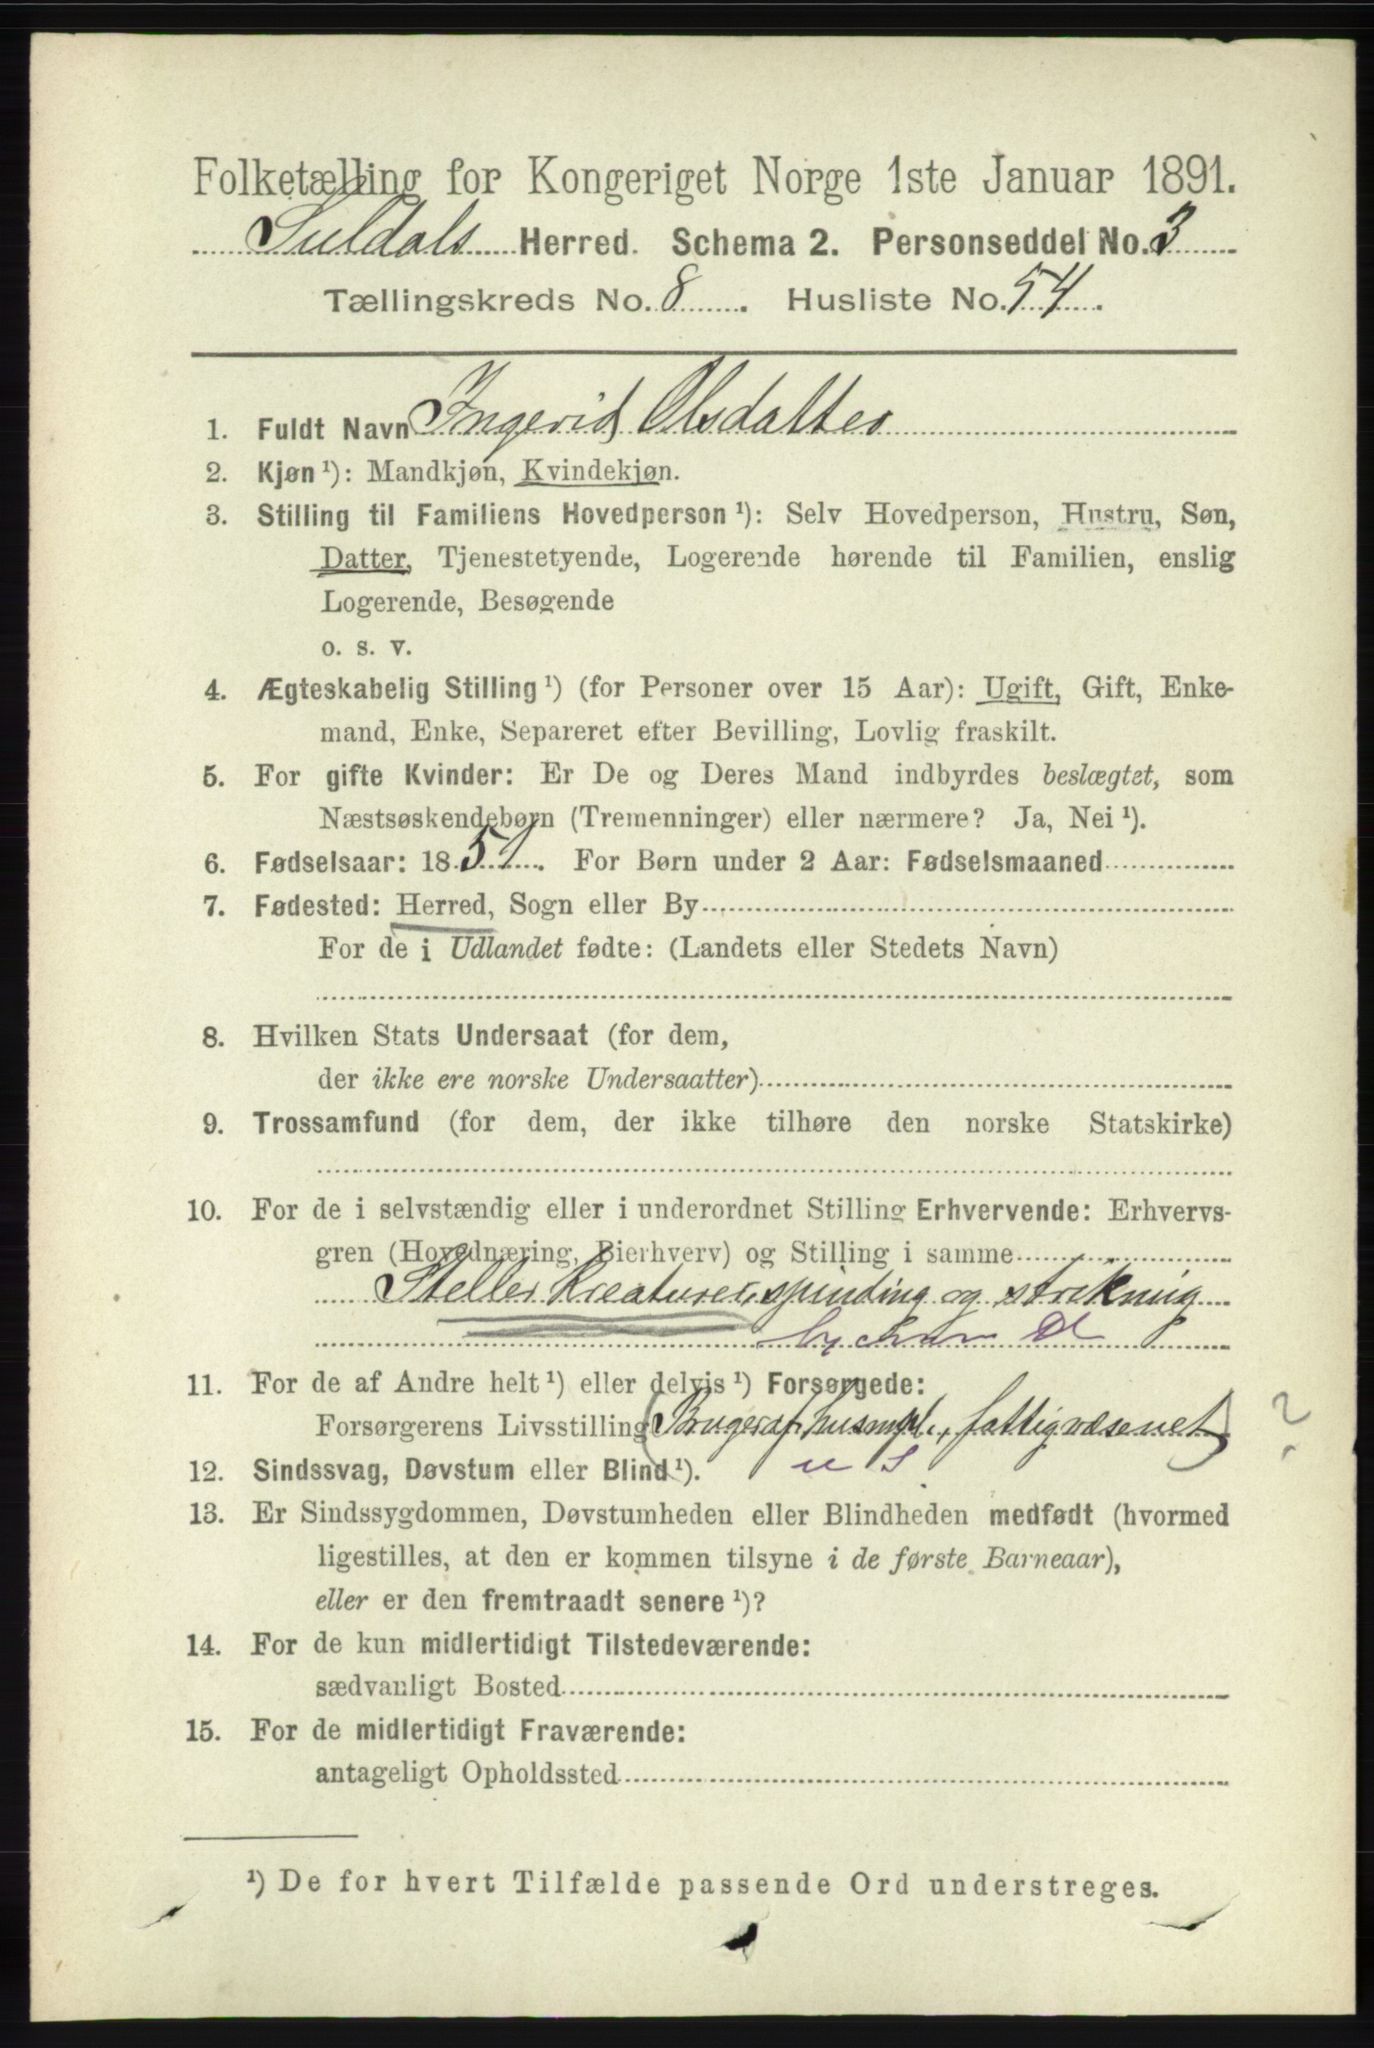 Folketælling for Kongeriget Norge 1ste Januar 1891.
Suldals Herred. Schema 2. Personseddel No. 3
Tællingskreds No. 8. Husliste No. 54.
1. Fuldt Navn Ingerid Olsdatter
2. Kjøn ¹): Mandkjøn, Kvindekjøn.
3. Stilling til Familiens Hovedperson ¹): Selv Hovedperson, Hustru, Søn,
Datter, Tjenestetyende, Logerende hørende til Familien, enslig
Logerende, Besøgende
o. s. v.
4. Ægteskabelig Stilling ¹) (for Personer over 15 Aar): Ugift, Gift, Enke-
mand, Enke, Separeret efter Bevilling, Lovlig fraskilt.
5. For gifte Kvinder: Er De og Deres Mand indbyrdes beslægtet, som
Næstsøskendebørn (Tremenninger) eller nærmere? Ja, Nei ¹).
6. Fødselsaar: 1851. For Børn under 2 Aar: Fødselsmaaned
7. Fødested: Herred, Sogn eller By
For de i Udlandet fødte: (Landets eller Stedets Navn)
8. Hvilken Stats Undersaat (for dem,
der ikke ere norske Undersaatter)
9. Trossamfund (for dem, der ikke tilhøre den norske Statskirke)
10. For de i selvstændig eller i underordnet Stilling Erhvervende: Erhvervs-
gren (Hovednæring, Bierhverv) og Stilling i samme
Steller Kreaturer, spinding og strikning
11. For de af Andre helt ¹) eller delvis ¹) Forsørgede:
Forsørgerens Livsstilling (Bruger af husmpl., fattigvæsenet) ?
12. Sindssvag, Døvstum eller Blind ¹). u s
13. Er Sindssygdommen, Døvstumheden eller Blindheden medfødt (hvormed
ligestilles, at den er kommen tilsyne i de første Barneaar),
eller er den fremtraadt senere ¹)?
14. For de kun midlertidigt Tilstedeværende:
sædvanligt Bosted
15. For de midlertidigt Fraværende:
antageligt Opholdssted
¹) De for hvert Tilfælde passende Ord understreges.